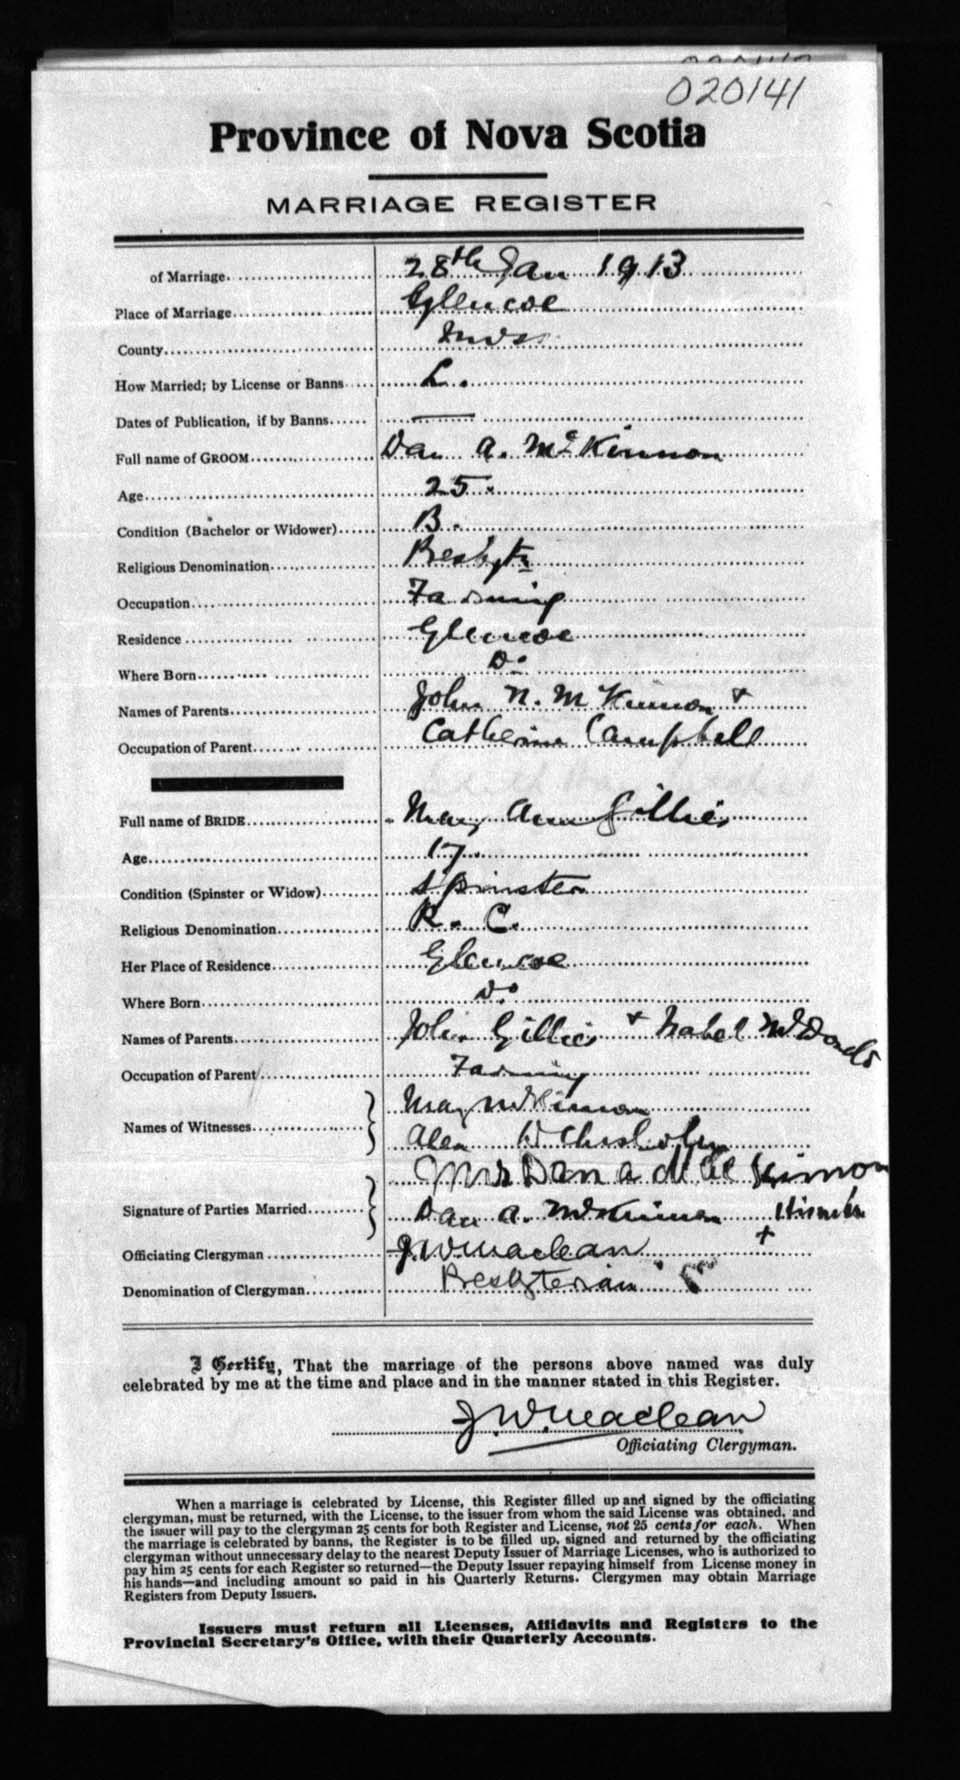 020141
Province of Nova Scotia
MARRIAGE REGISTER
of Marriage 28th Jan 1913
Place of Marriage Glencoe
County Invss
How Married; by License or Banns L.
Dates of Publication, if by Banns —
Full name of GROOM Dan A. McKinnon
Age 25.
Condition (Bachelor or Widower) B.
Religious Denomination Presbytn
Occupation Farming
Residence Glencoe
Where Born Do
Names of Parents John N. McKinnon +
Occupation of Parent Catherine Campbell
Full name of BRIDE Mary Ann Gillies
Age 17.
Condition (Spinster or Widow) Spinster
Religious Denomination R. C.
Her Place of Residence Glencoe
Where Born Do
Names of Parents John Gillies + Isabel McDonald
Occupation of Parent Farming
Names of Witnesses May McKinnon
Alex W Chisholm
Signature of Parties Married Mrs Dan a Mac Kinnon
Dan A. McKinnon His mark
+
Officiating Clergyman J W Maclean
Denomination of Clergyman Presbyterian
I Certify, That the marriage of the persons above named was duly
celebrated by me at the time and place and in the manner stated in this Register.
J. W. Maclean
Officiating Clergyman.
When a marriage is celebrated by License, this Register filled up and signed by the officiating
clergyman, must be returned, with the License, to the issuer from whom the said License was obtained, and
the issuer will pay to the clergyman 25 cents for both Register and License, not 25 cents for each. When
the marriage is celebrated by banns, the Register is to be filled up, signed and returned by the officiating
clergyman without unnecessary delay to the nearest Deputy Issuer of Marriage Licenses, who is authorized to
pay him 25 cents for each Register so returned—the Deputy Issuer repaying himself from License money in
his hands—and including amount so paid in his Quarterly Returns. Clergymen may obtain Marriage
Registers from Deputy Issuers.
Issuers must return all Licenses, Affidavits and Registers to the
Provincial Secretary's Office, with their Quarterly Accounts.